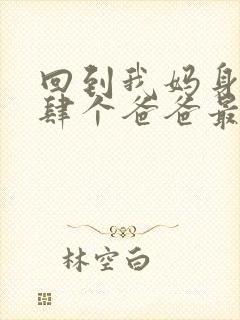 回到我妈身
肆个爸爸最
林空白